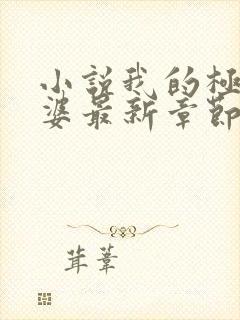 小説我的極
婆最新章節
茸葦